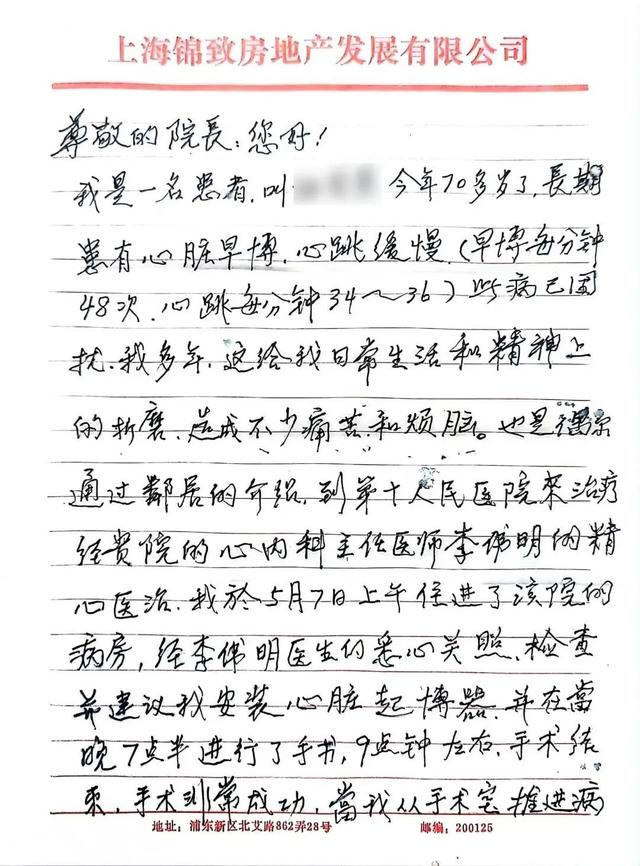 上海锦致房地产发展有限公司
尊敬的院長：您好！
我是一名患者，叫 今年70多岁了，長期
患有心脏早博，心跳缓慢，（早博每分钟
48次，心跳每分钟34～36）此病已困
扰我多年，这给我日常生活和精神上
的折磨，造成不少痛苦和烦脑。也是偶尔
通过鄰居的介绍，到第十人民医院來治疗
经贵院的心内科主任医师李伟明的精
心医治，我於5月7日上午住进了该院的
病房，经李伟明医生的悉心关照、检查
并建议我安装心脏起博器，并在當
晚7点半进行了手术，9点钟左右，手术结
束，手术非常成功，當我从手术室推进病
地址：浦东新区北艾路862弄28号 邮编：200125